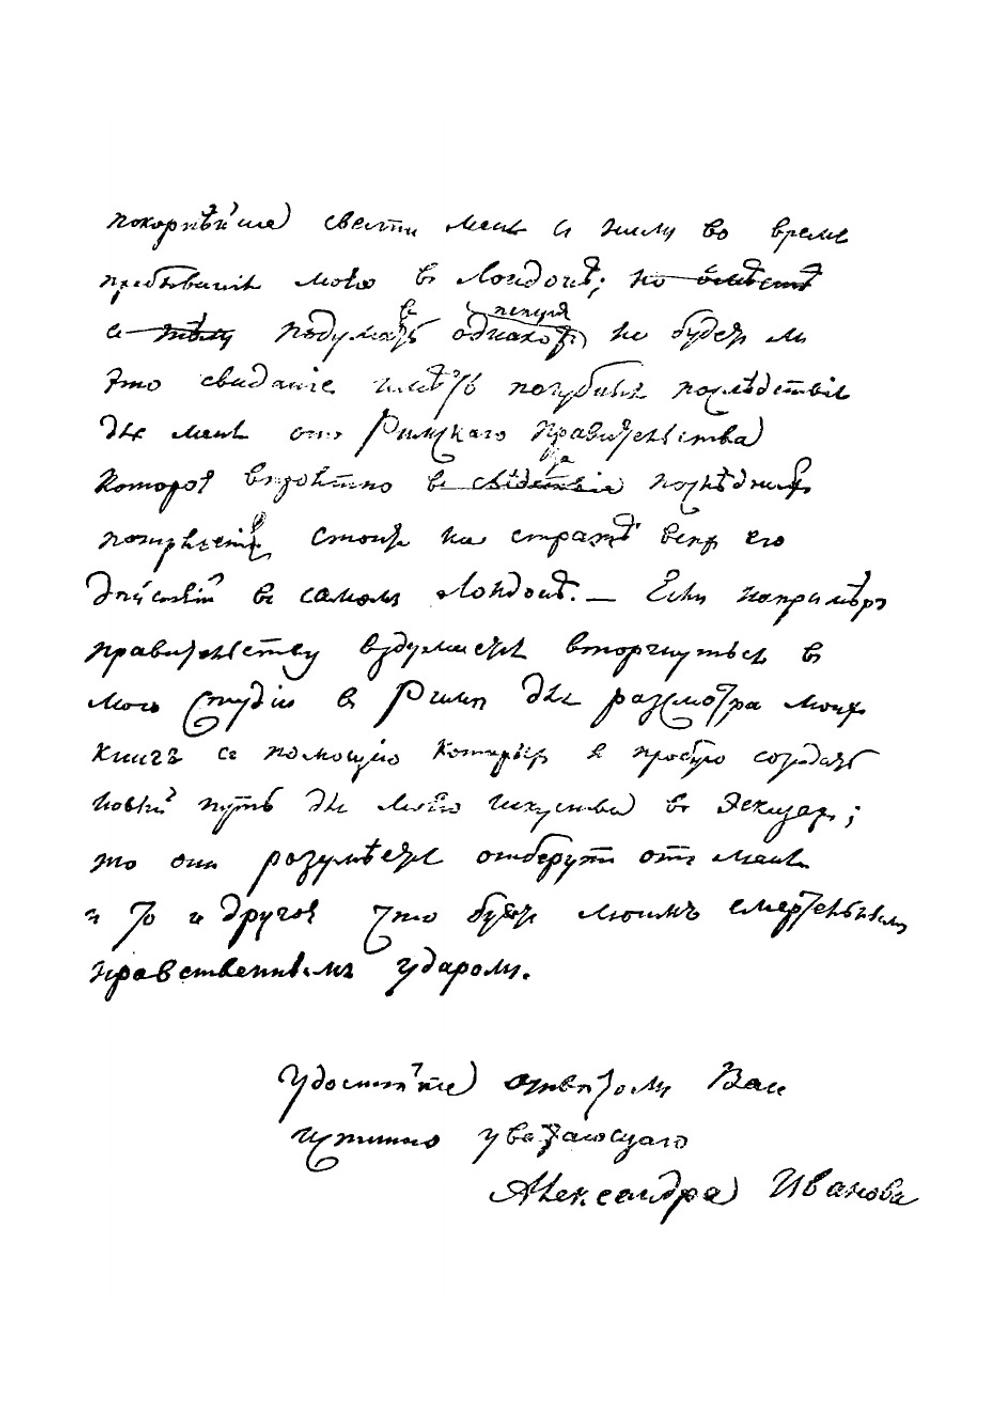 покорнѣйше свести меня съ нимъ во время
пребыванія моего въ Лондонѣ; но
съ подумать однако не будетъ ли
это свиданіе имѣть пагубныя послѣдствія
для меня отъ Римскаго Правительства
которое вѣроятно въ послѣднихъ
стоитъ на стражѣ всѣхъ его
дѣйствій въ самомъ Лондонѣ. — Если напримѣръ
правительству вздумается вторгнуться въ
мою студію въ Римѣ для разсмотра моихъ
книгъ съ помощію которыхъ я просто создалъ
новый путь для моего искуства въ Эскизахъ;
то они разумѣется отберутъ отъ меня
и то и другое что будетъ моимъ смертельнымъ
нравственнымъ ударомъ.
Удостойте отвѣтомъ Васъ
истинно уважающаго
Александра Иванова